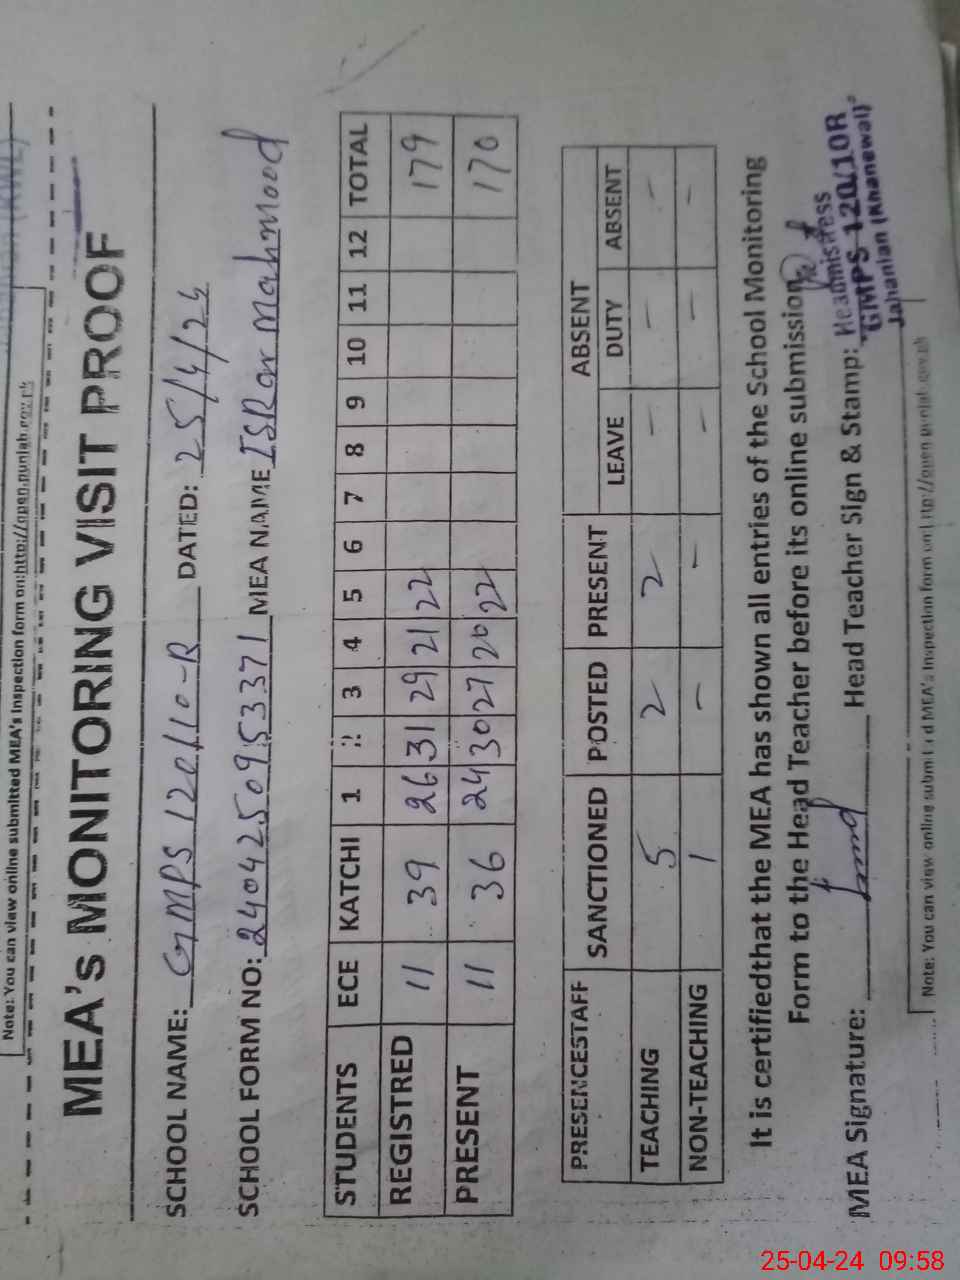 Note: You can view online submitted MEA's Inspection form on:http://open.punjab.gov.pk
MEA's MONITORING VISIT PROOF
SCHOOL NAME: GMPS 120/10-R DATED: 25/4/24
SCHOOL FORM NO: 240425095371 MEA NAME ISRar Mahmood
STUDENTS ECE KATCHI 1 2 3 4 5 6 7 8 9 10 11 12 TOTAL
REGISTRED 11 39 26 31 29 21 22 179
PRESENT 11 36 24 30 27 20 22 170
PRESENCESTAFF SANCTIONED POSTED PRESENT ABSENT
LEAVE DUTY ABSENT
TEACHING 5 2 2 - - -
NON-TEACHING 1 - - - - -
It is certifiedthat the MEA has shown all entries of the School Monitoring
Form to the Head Teacher before its online submission
MEA Signature: Head Teacher Sign & Stamp: Headmistress
GMPS 120/10R
Jahanian (Khanewal)
Note: You can view online submitted MEA's Inspection form on: http://open.punjab.gov.pk
25-04-24 09:58